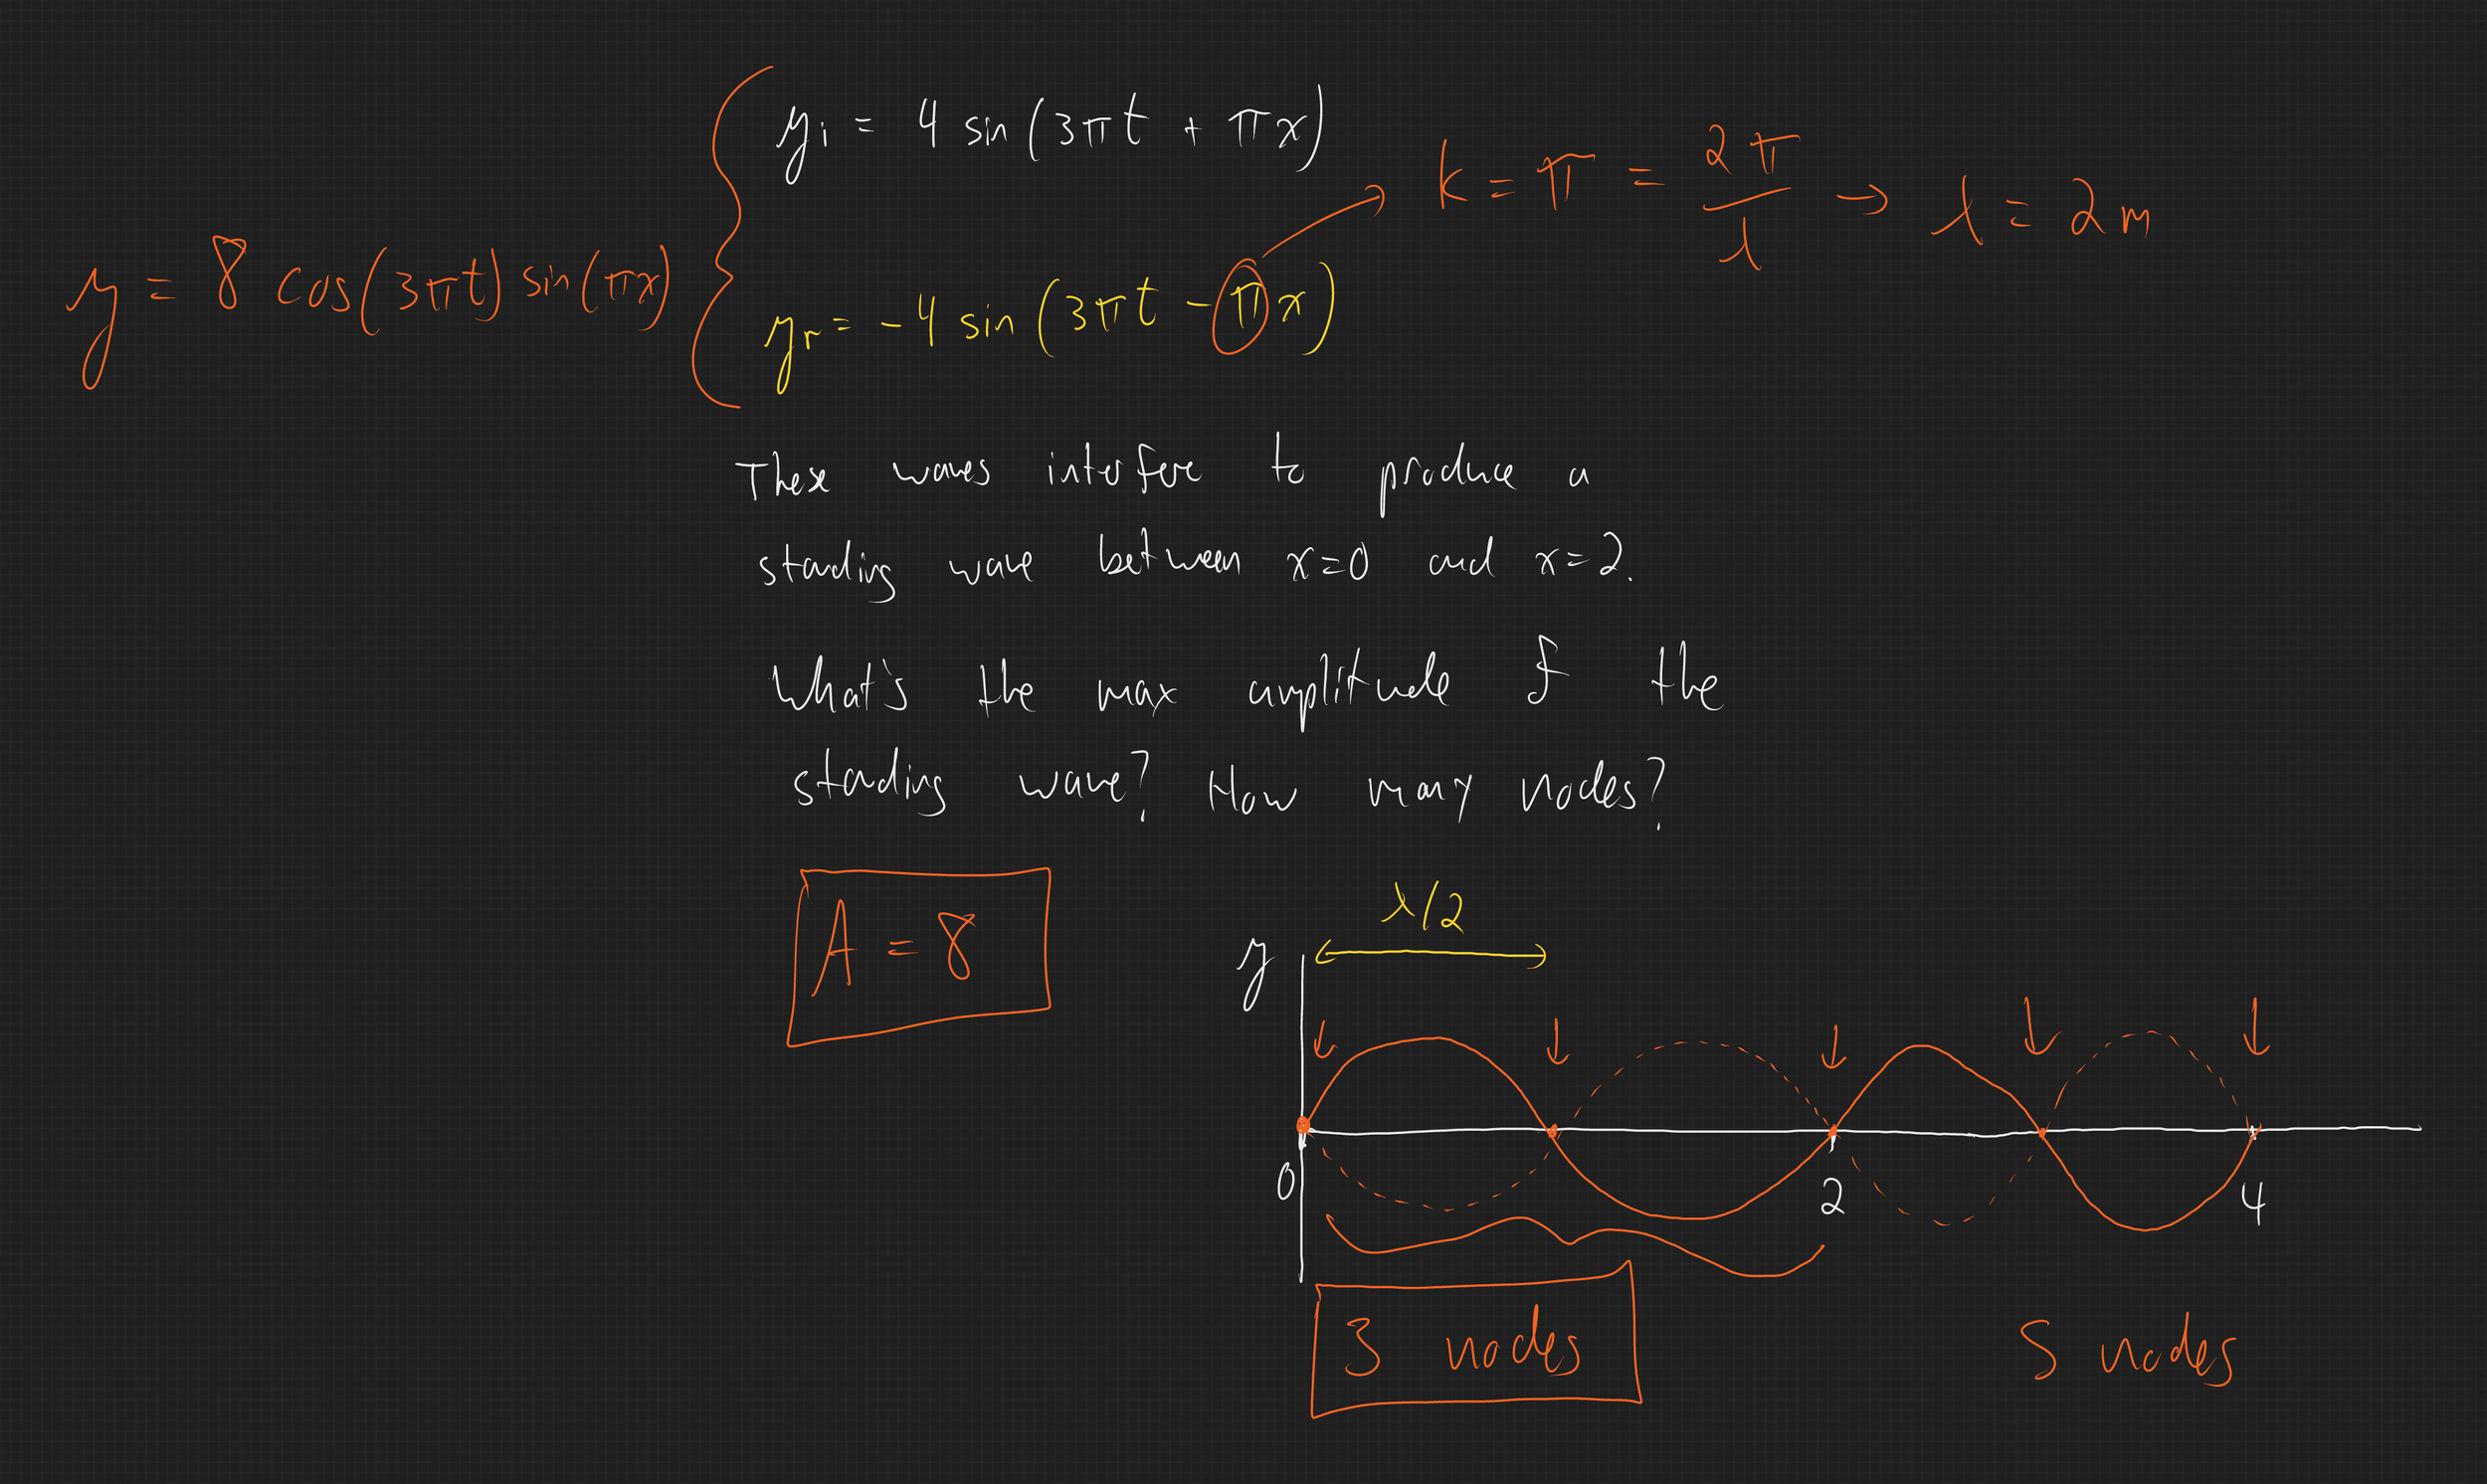 yi = 4 sin(3πt + πx)
k = π = 2π/λ → λ = 2m
y = 8 cos(3πt) sin(πx)
yr = -4 sin(3πt - πx)
These waves interfere to produce a
standing wave between x=0 and x=2.
What's the max amplitude of the
standing wave? How many nodes?
A = 8
λ/2
y
0
2
4
3 nodes
5 nodes